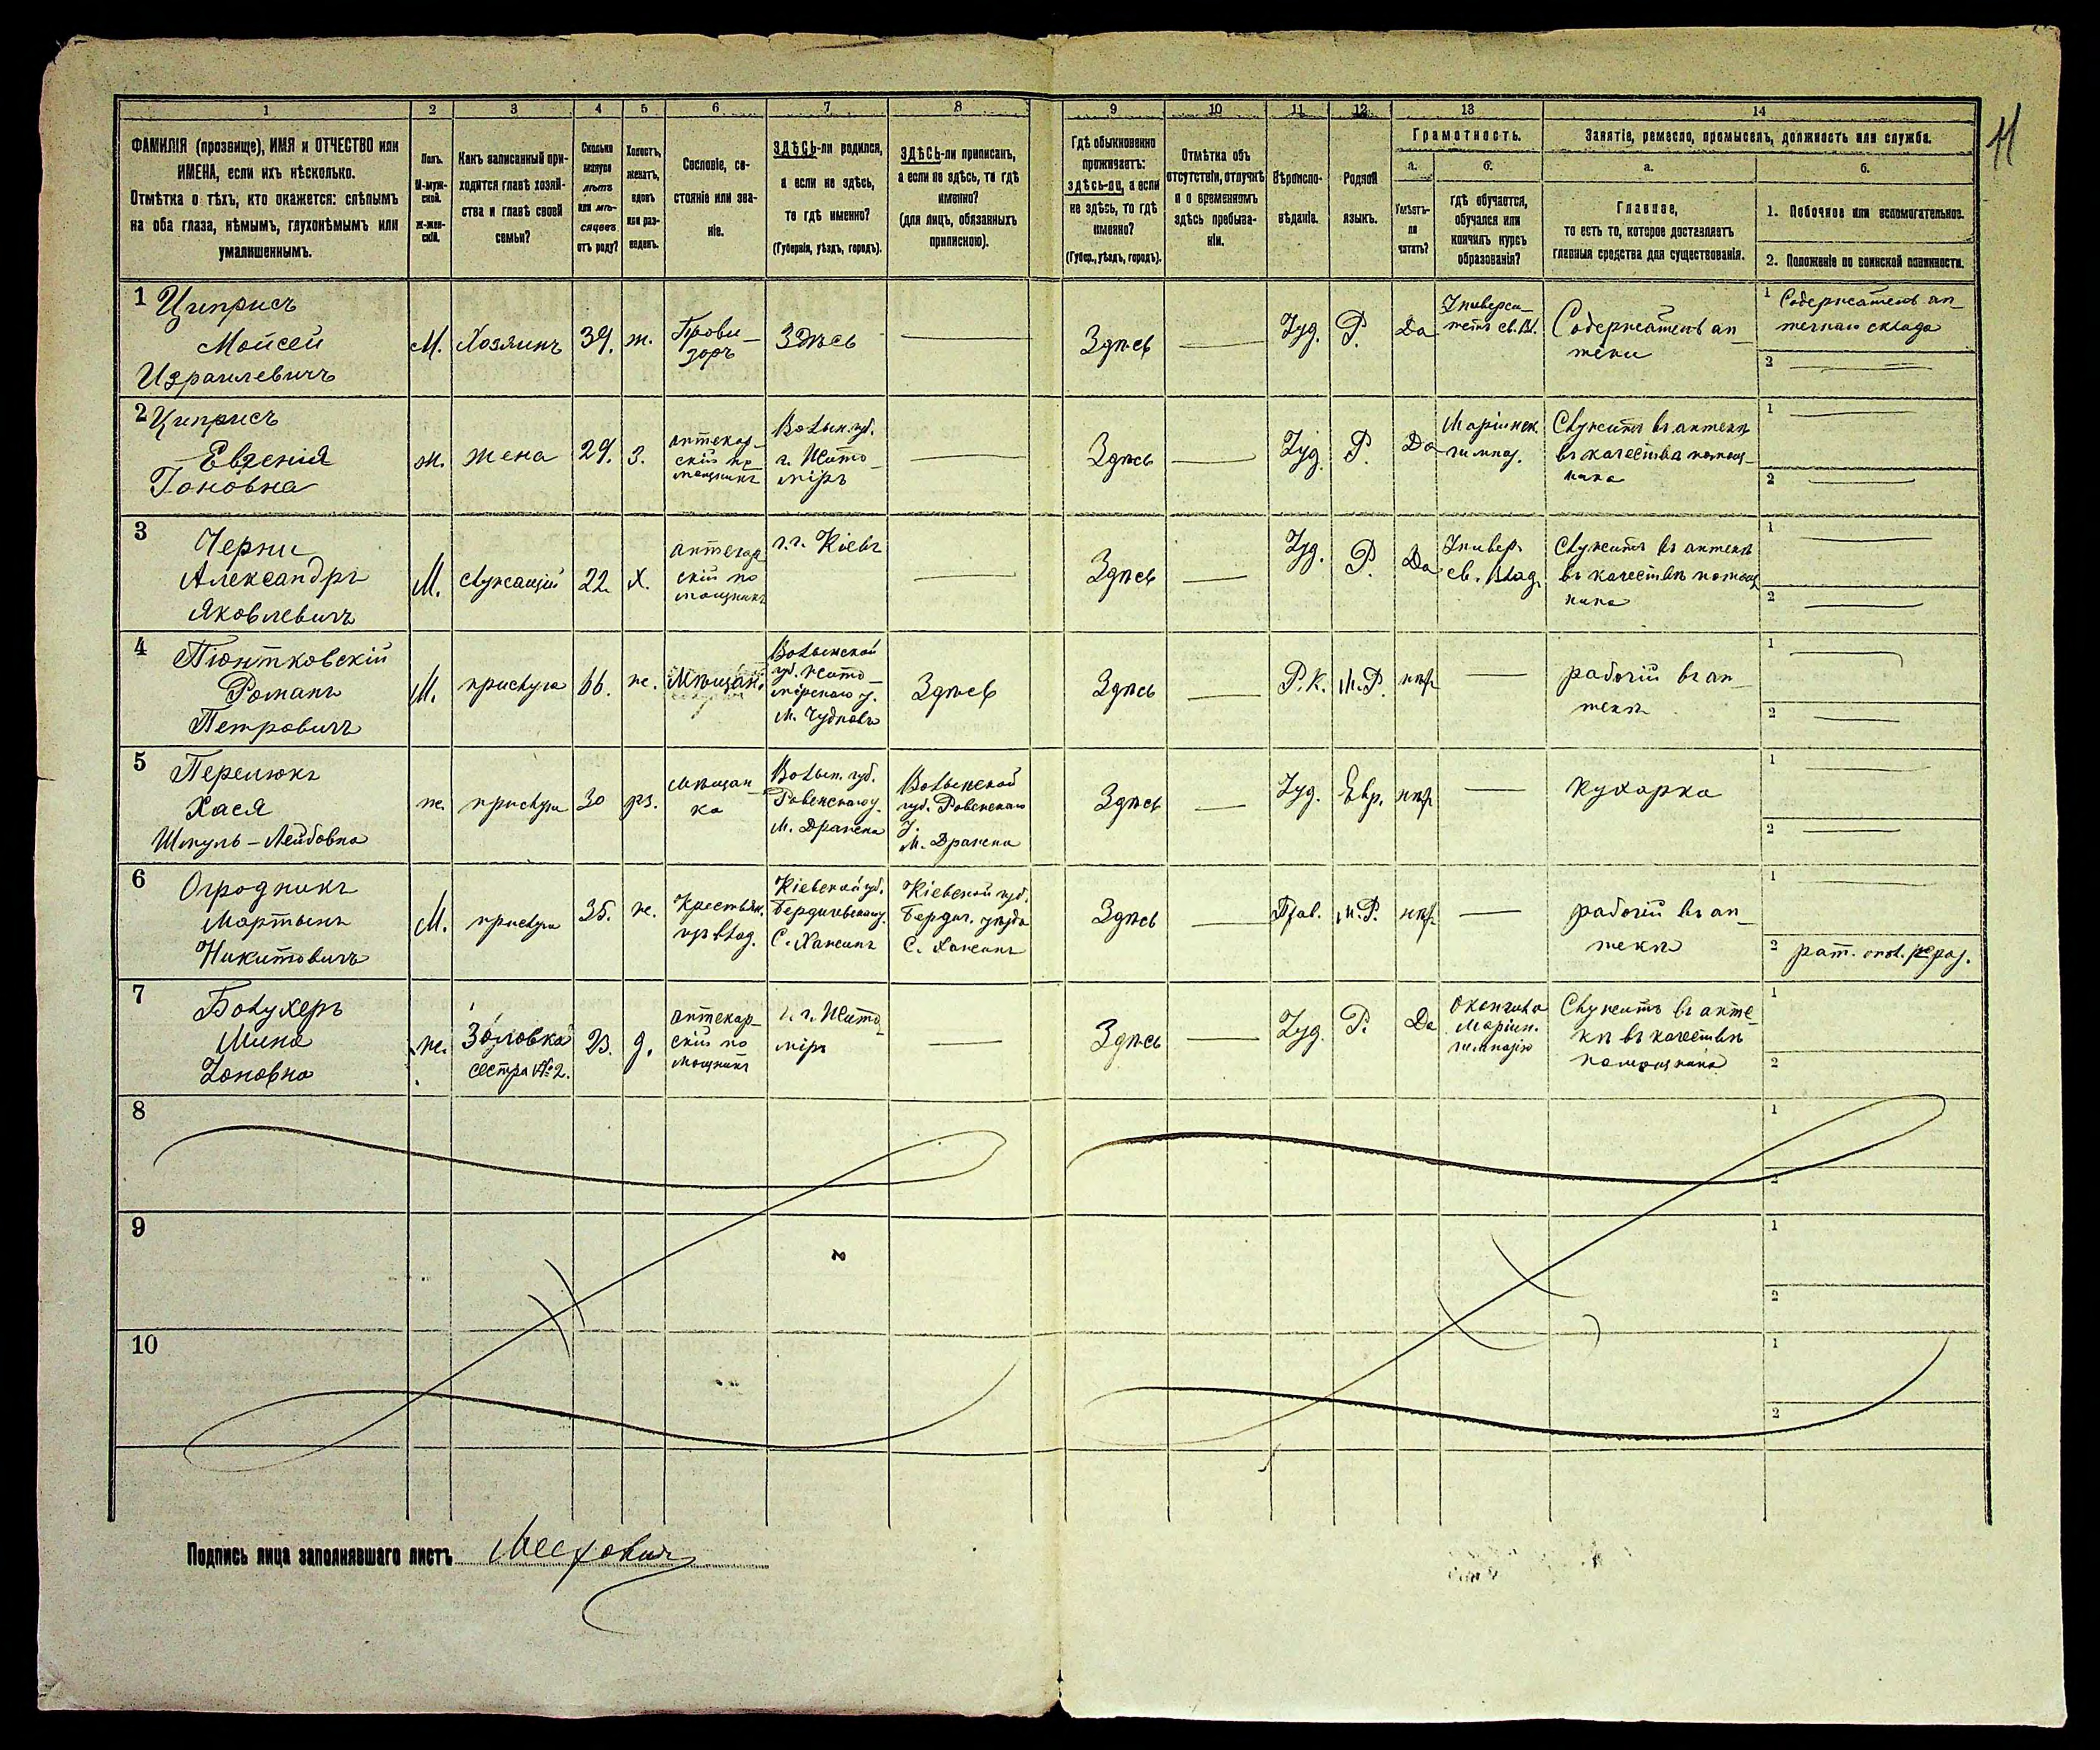 11
1 2 3 4 5 6 7 8 9 10 11 12 13 14
ФАМИЛІЯ (прозвище), ИМЯ и ОТЧЕСТВО или
ИМЕНА, если ихъ нѣсколько.
Отмѣтка о тѣхъ, кто окажется: слѣпымъ
на оба глаза, нѣмымъ, глухонѣмымъ или
умалишеннымъ.
Полъ.
М-муж-
ской.
Ж-жен-
скій.
Какъ записанный при-
ходится главѣ хозяй-
ства и главѣ своей
семьи?
Сколько
минуло
лѣтъ
или мѣ-
сяцевъ
отъ роду?
Холостъ,
женатъ,
вдовъ
или раз-
веденъ.
Сословіе, со-
стояніе или зва-
ніе.
ЗДѢСЬ-ли родился,
а если не здѣсь,
то гдѣ именно?
(Губернія, уѣздъ, городъ).
ЗДѢСЬ-ли приписанъ,
а если не здѣсь, то гдѣ
именно?
(для лицъ, обязанныхъ
припискою).
Гдѣ обыкновенно
проживаетъ:
здѣсь-ли, а если
не здѣсь, то гдѣ
именно?
(Губер., уѣздъ, городъ).
Отмѣтка объ
отсутствіи, отлучкѣ
и о временномъ
здѣсь пребыва-
ніи.
Вѣроиспо-
вѣданіе.
Родной
языкъ.
Грамотность.
а.
Умѣетъ-
ли
читать?
б.
гдѣ обучается,
обучался или
кончилъ курсъ
образованія?
Занятіе, ремесло, промыселъ, должность или служба.
а.
Главное,
то есть то, которое доставляетъ
главныя средства для существованія.
б.
1. Побочное или вспомогательное.
2. Положеніе по воинской повинности.
1 Циприсъ
Мойсей
Израилевичъ
М.
Хозяинъ
39.
ж.
Прови-
зоръ
Здѣсь
Здѣсь
Іуд.
Р.
Да
Универси-
тетъ св. Вл.
Содержатель ап-
теки
1 Содержатель ап-
течнаго склада
2
2 Циприсъ
Евгенія
Гоновна
ж.
жена
29.
З.
аптекар-
скій по-
мощникъ
Волын. губ.
г. Жито-
міръ
Здѣсь
Іуд.
Р.
Да
Маріинск.
гимназ.
Служитъ въ аптекѣ
въ качества помощ-
ника
1
2
3 Черни
Александръ
Яковлевичъ
М.
служащій
22
Х.
аптекар
скій по
мощникъ
г. г. Кіевъ
Здѣсь
Іуд.
Р.
Да
Универ.
св. Влад.
Служитъ въ аптекѣ
въ качествѣ помощ
ника
1
2
4 Піонтковскій
Романъ
Петровичъ
М.
прислуга
66.
ж.
Мѣщан.
Волынской
губ. Жито-
мірскаго у.
М. Чудновъ
Здѣсь
Здѣсь
Р. К.
М. Р.
нѣт
рабочій въ ап-
текѣ
1
2
5 Перелюкъ
Хася
Шмуль-Лейбовна
ж.
прислуга
30
рз.
мѣщан-
ка
Волын. губ.
Ровенскаго у.
М. Дражена
Волынской
губ. Ровенскаго
у.
М. Дражена
Здѣсь
Іуд.
Евр.
нѣт
кухарка
1
2
6 Огродникъ
Мартынъ
Никитовичъ
М.
прислуга
35.
ж.
Крестьян.
из влад.
Кіевской губ.
Бердичевскаго у.
С. Хажинъ
Кіевской губ.
Бердич. уѣзда
С. Хажинъ
Здѣсь
Прав.
М. Р.
нѣт
рабочій въ ап-
текѣ
1
2 рат. опол. раз.
7 Болухеръ
Мина
Іоновна
ж.
Золовка
сестра №2.
23.
д.
аптекар-
скій по
мощникъ
г. г. Жито-
міръ
Здѣсь
Іуд.
Р.
Да
Окончила
Маріин.
гимназію
Служитъ въ апте-
кѣ въ качествѣ
помощника
1
2
8
1
2
9
1
2
10
1
2
Подпись лица заполнявшаго листъ